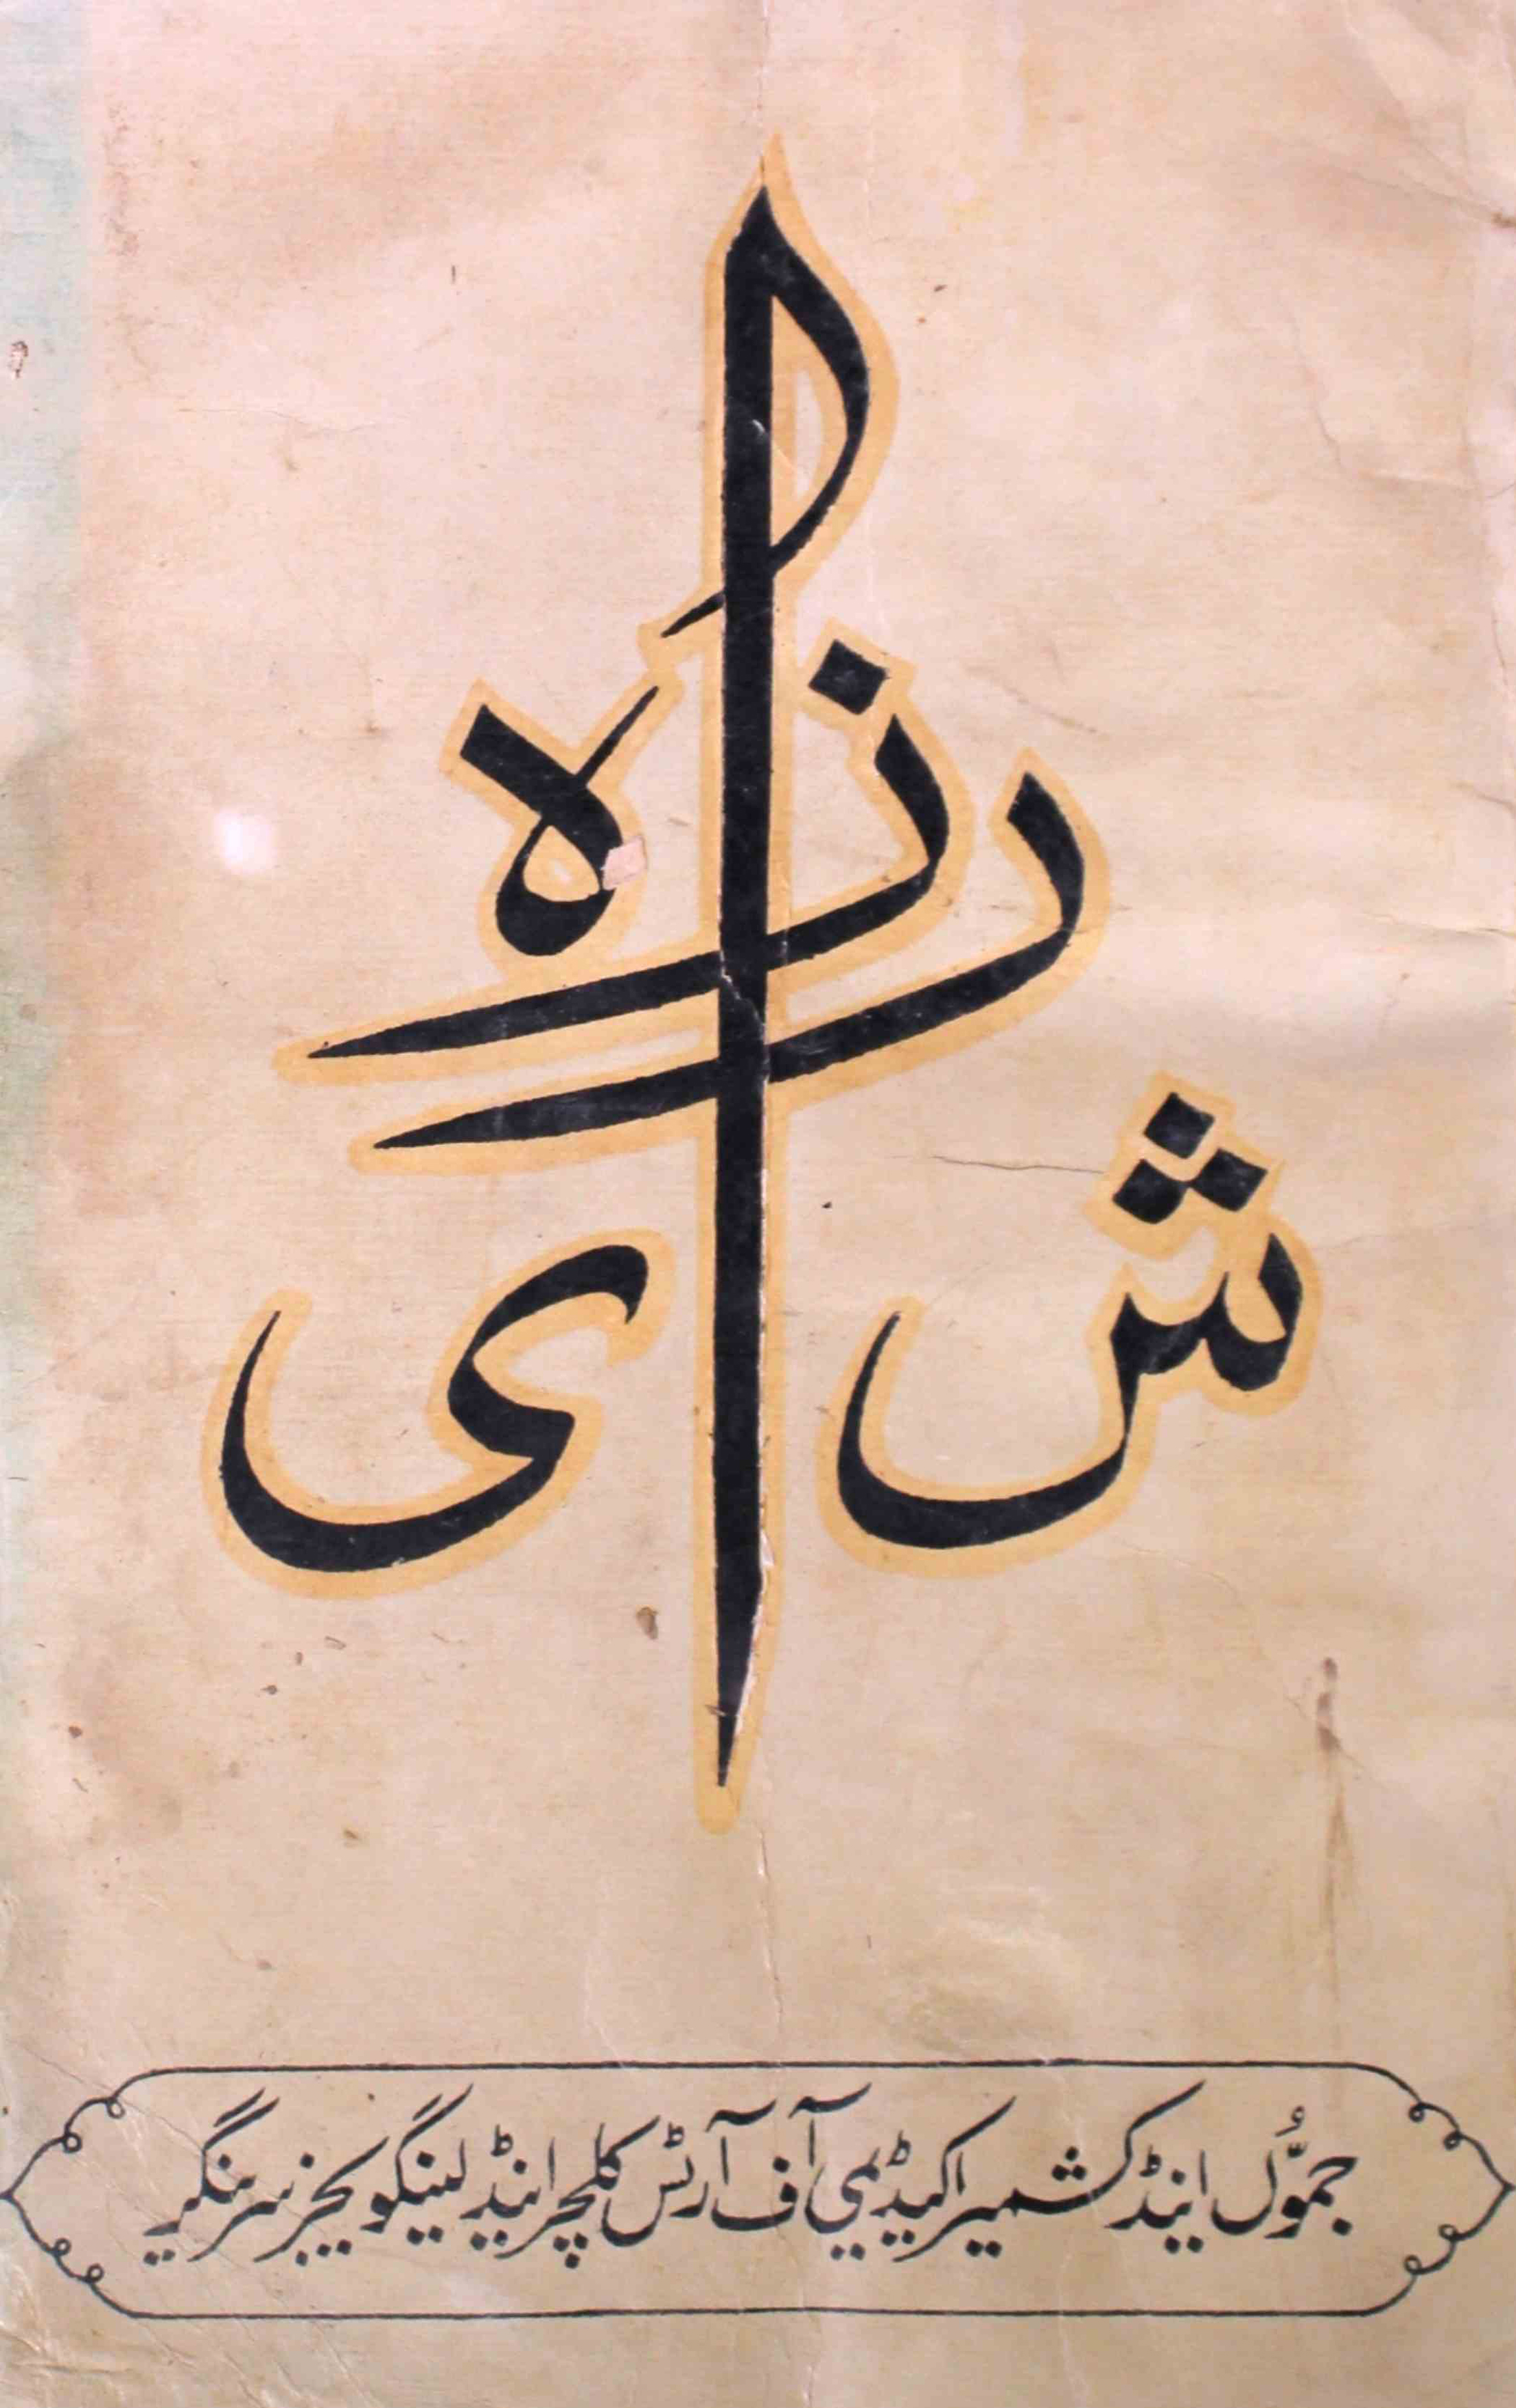 شیرازہ
جموّں اینڈ کشمیر اکیڈیمی آف آرٹس کلچر اینڈ لینگویجز سرینگر